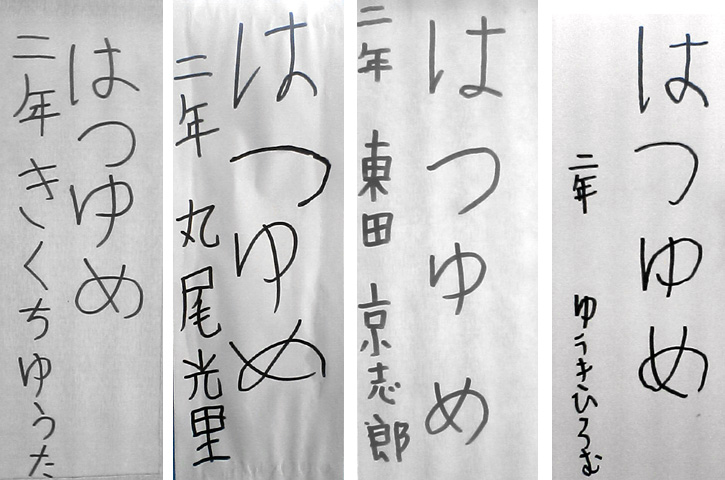 はつゆめ
二年 きくちゆうた
はつゆめ
二年 丸尾光里
はつゆめ
二年 東田 京志郎
はつゆめ
二年 ゆうきひろむ